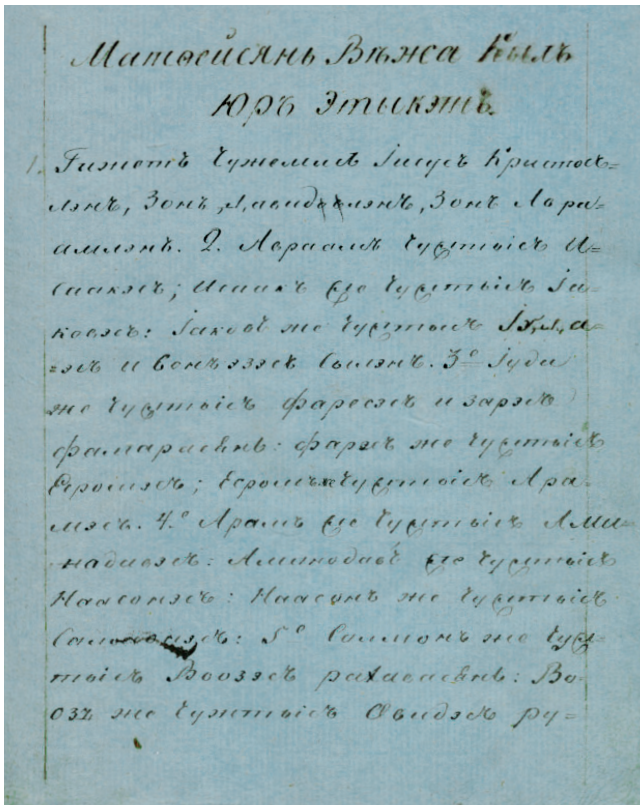 Матѳейсянь Вѣжа Кылъ
Юръ Этыкэжъ.
1. Гижетъ Чужемлѣ Іисусъ Кристос=
лэнъ, Зонъ Давидлэнъ, Зонъ Авра=
амлэнъ. 2. Авраамъ Чужтысъ И=
саакэсъ; Исаакъ же Чужтысъ Іа=
ковэсъ: Іаковъ же Чужтысъ Іуда=
=эсъ и вонъэзэсъ сылэнъ. 3º Іуда
же Чужтысъ фаресэсъ и зарэсъ
фамарасянь: фаресъ же Чужтысъ
Есромэсъ; Есромъ Чужтысъ Ара=
мэсъ. 4º Арамъ же Чужтысъ Ами=
надавэсъ: Аминодавъ же Чужтысъ
Наасонэсъ: Наасонъ же Чужтысъ
5º Салмонъ же Чуж=
тысъ Воозэсъ рахавасянь: Во=
озъ же Чужтысъ Овидэсъ ру=